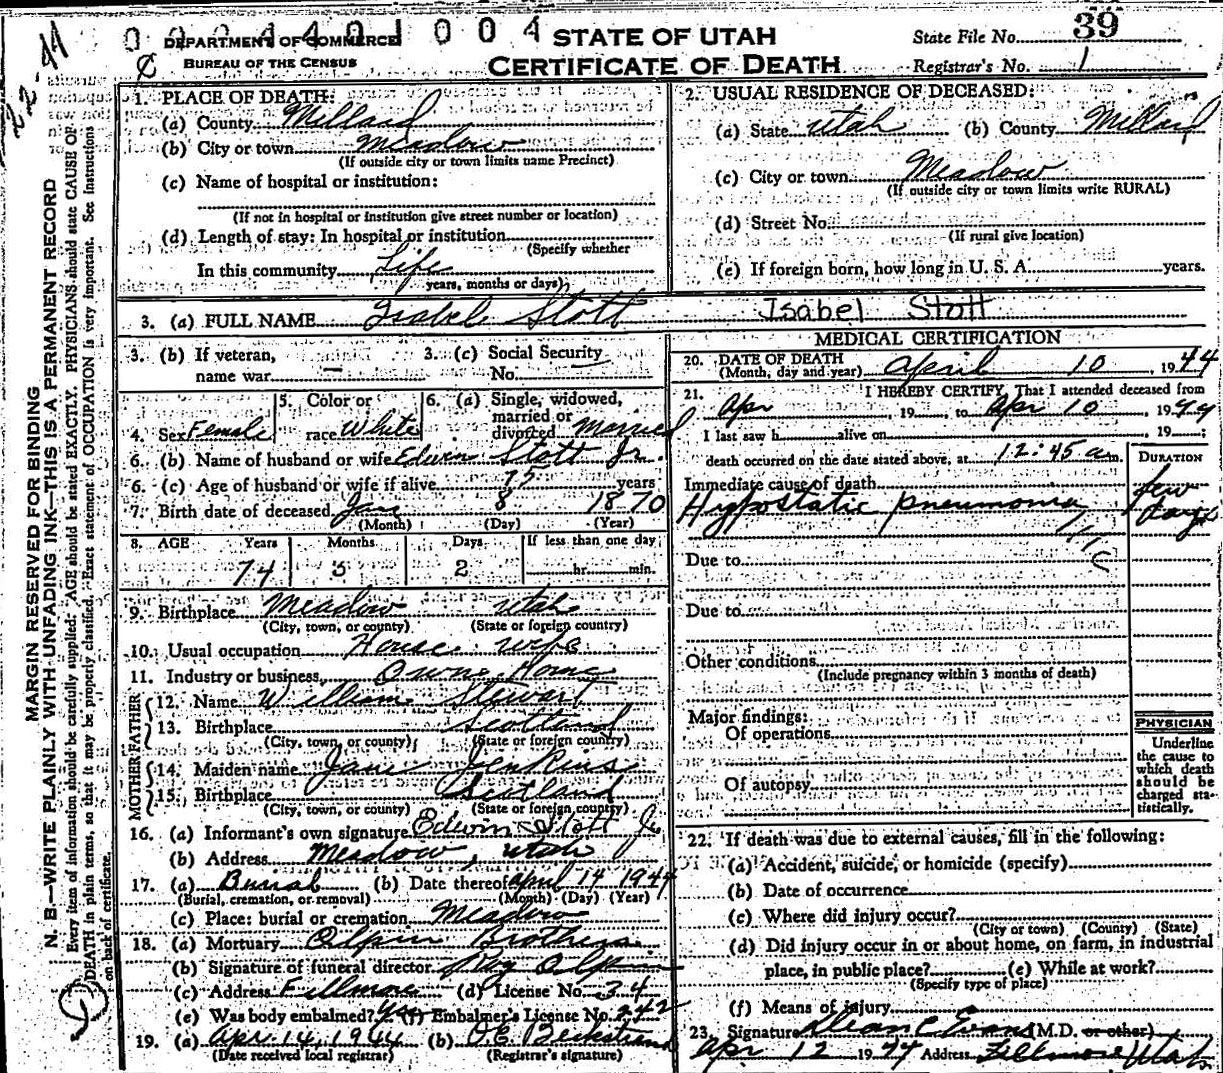 0 0 0 4 4 0 1 0 0 4
DEPARTMENT OF COMMERCE
BUREAU OF THE CENSUS
STATE OF UTAH
CERTIFICATE OF DEATH
State File No. 39
Registrar's No. 1
MARGIN RESERVED FOR BINDING
N. B.—WRITE PLAINLY WITH UNFADING INK—THIS IS A PERMANENT RECORD
Every item of information should be carefully supplied. AGE should be stated EXACTLY. PHYSICIANS should state CAUSE OF
DEATH in plain terms, so that it may be properly classified. Exact statement of OCCUPATION is very important. See Instructions
on back of certificate.
1. PLACE OF DEATH:
(a) County Millard
(b) City or town Meadow
(If outside city or town limits name Precinct)
(c) Name of hospital or institution:
(If not in hospital or institution give street number or location)
(d) Length of stay: In hospital or institution
(Specify whether
In this community Life
years, months or days)
2. USUAL RESIDENCE OF DECEASED:
(a) State Utah (b) County Millard
(c) City or town Meadow
(If outside city or town limits write RURAL)
(d) Street No.
(If rural give location)
(e) If foreign born, how long in U. S. A. years.
3. (a) FULL NAME Isabel Stott Isabel Stott
3. (b) If veteran, name war — 3. (c) Social Security No.
4. Sex Female 5. Color or race White 6. (a) Single, widowed, married or divorced Married
6. (b) Name of husband or wife Edwin Stott Jr.
6. (c) Age of husband or wife if alive 75 years
7. Birth date of deceased Jan 8 1870
(Month) (Day) (Year)
8. AGE Years Months Days If less than one day
74 3 2 hr. min.
9. Birthplace Meadow Utah
(City, town, or county) (State or foreign country)
10. Usual occupation House wife
11. Industry or business Own Home
FATHER
12. Name William Stewart
13. Birthplace Scotland
(City, town, or county) (State or foreign country)
MOTHER
14. Maiden name Jane Jenkins
15. Birthplace Scotland
(City, town, or county) (State or foreign country)
16. (a) Informant's own signature Edwin Stott Jr
(b) Address Meadow, Utah
17. (a) Burial (b) Date thereof April 14 1944
(Burial, cremation, or removal) (Month) (Day) (Year)
(c) Place: burial or cremation Meadow
18. (a) Mortuary Olpin Brothers
(b) Signature of funeral director Ray Olpin
(c) Address Fillmore (d) License No. 34
(e) Was body embalmed? Yes (f) Embalmer's License No. 242
19. (a) Apr. 14, 1944 (b)
(Date received local registrar) (Registrar's signature)
MEDICAL CERTIFICATION
20. DATE OF DEATH
(Month, day and year) April 10, 1944
21. I HEREBY CERTIFY, That I attended deceased from
Apr, 19 , to Apr 10, 1944
I last saw h alive on , 19 ;
death occurred on the date stated above, at 12:45 a m.
DURATION
Immediate cause of death
Hypostatic pneumonia few days
Due to
Due to
Other conditions
(Include pregnancy within 3 months of death)
Major findings:
Of operations
Of autopsy
PHYSICIAN
Underline
the cause to
which death
should be
charged sta-
tistically.
22. If death was due to external causes, fill in the following:
(a) Accident, suicide, or homicide (specify)
(b) Date of occurrence
(c) Where did injury occur?
(City or town) (County) (State)
(d) Did injury occur in or about home, on farm, in industrial
place, in public place? (e) While at work?
(Specify type of place)
(f) Means of injury
23. Signature Dean C Evans (M.D. or other)
Apr 12 1944 Address Fillmore Utah